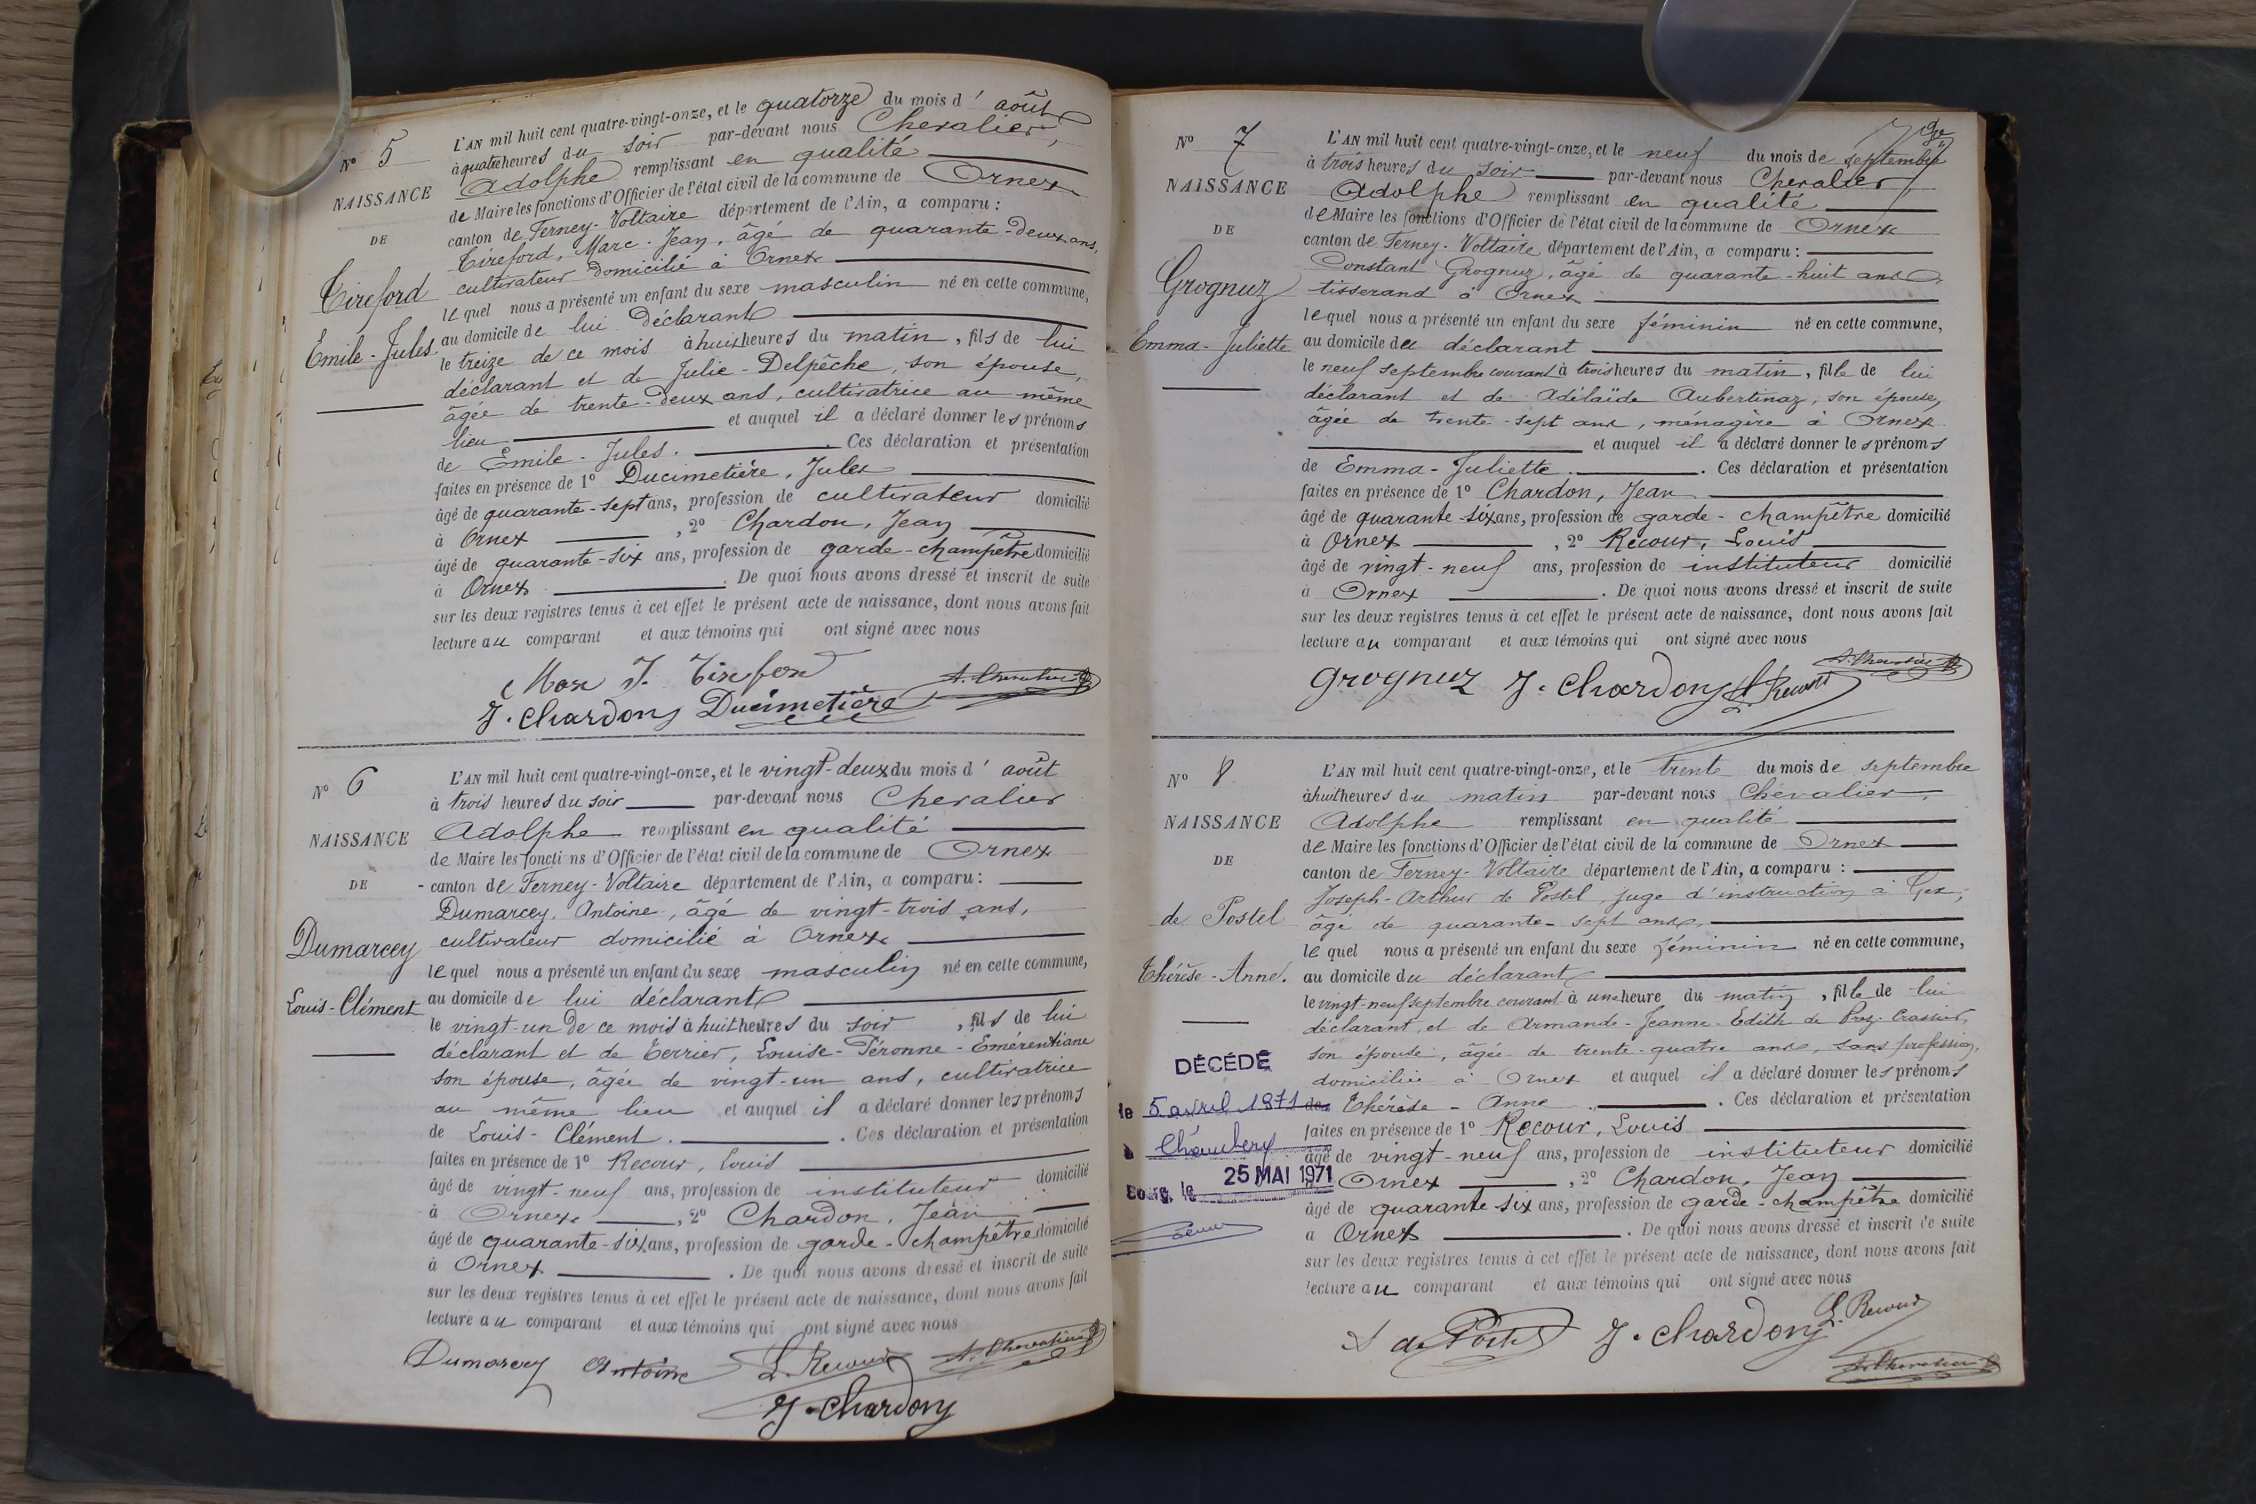 N° 5
NAISSANCE
DE
Tireford
Emile-Jules
L'AN mil huit cent quatre-vingt-onze, et le quatorze du mois d'août
à quatre heures du soir par-devant nous Chevalier,
Adolphe remplissant en qualité
de Maire les fonctions d'Officier de l'état civil de la commune de Ornex
canton de Ferney-Voltaire département de l'Ain, a comparu :
Tireford, Marc-Jean, âgé de quarante-deux ans,
cultivateur domicilié à Ornex
lequel nous a présenté un enfant du sexe masculin né en cette commune,
au domicile de lui déclarant
le treize de ce mois à huit heures du matin, fils de lui
déclarant et de Julie-Delpêche, son épouse,
âgée de trente-deux ans, cultivatrice au même
lieu et auquel il a déclaré donner les prénoms
de Emile-Jules. Ces déclaration et présentation
faites en présence de 1° Ducimetière, Jules
âgé de quarante-sept ans, profession de cultivateur domicilié
à Ornex, 2° Chardon, Jean
âgé de quarante-six ans, profession de garde-champêtre domicilié
à Ornex. De quoi nous avons dressé et inscrit de suite
sur les deux registres tenus à cet effet le présent acte de naissance, dont nous avons fait
lecture au comparant et aux témoins qui ont signé avec nous
A. Chevalier
J. Chardon Ducimetière
N° 6
NAISSANCE
DE
Dumarcey
Louis-Clément
L'AN mil huit cent quatre-vingt-onze, et le vingt-deux du mois d'août
à trois heures du soir par-devant nous Chevalier
Adolphe remplissant en qualité
de Maire les fonctions d'Officier de l'état civil de la commune de Ornex
canton de Ferney-Voltaire département de l'Ain, a comparu :
Dumarcey, Antoine, âgé de vingt-trois ans,
cultivateur domicilié à Ornex
lequel nous a présenté un enfant du sexe masculin né en cette commune,
au domicile de lui déclarant
le vingt-un de ce mois à huit heures du soir, fils de lui
déclarant et de Terrier, Louise-Péronne-Emérentiane
son épouse, âgée de vingt-un ans, cultivatrice
au même lieu et auquel il a déclaré donner les prénoms
de Louis-Clément. Ces déclaration et présentation
faites en présence de 1° Recour, Louis
âgé de vingt-neuf ans, profession de instituteur domicilié
à Ornex, 2° Chardon, Jean
âgé de quarante-six ans, profession de garde-champêtre domicilié
à Ornex. De quoi nous avons dressé et inscrit de suite
sur les deux registres tenus à cet effet le présent acte de naissance, dont nous avons fait
lecture au comparant et aux témoins qui ont signé avec nous
Dumarcey Antoine L. Recour A. Chevalier
J. Chardon
N° 7
NAISSANCE
DE
Grognuz
Emma-Juliette
L'AN mil huit cent quatre-vingt-onze, et le neuf du mois de septembre
à trois heures du soir par-devant nous Chevalier
Adolphe remplissant en qualité
de Maire les fonctions d'Officier de l'état civil de la commune de Ornex
canton de Ferney-Voltaire département de l'Ain, a comparu :
Constant Grognuz, âgé de quarante-huit ans,
tisserand à Ornex
lequel nous a présenté un enfant du sexe féminin né en cette commune,
au domicile du déclarant
le neuf septembre courant à trois heures du matin, fille de lui
déclarant et de Adélaïde Aubertinaz, son épouse,
âgée de trente-sept ans, ménagère à Ornex
et auquel il a déclaré donner les prénoms
de Emma-Juliette. Ces déclaration et présentation
faites en présence de 1° Chardon, Jean
âgé de quarante-six ans, profession de garde-champêtre domicilié
à Ornex, 2° Recour, Louis
âgé de vingt-neuf ans, profession de instituteur domicilié
à Ornex. De quoi nous avons dressé et inscrit de suite
sur les deux registres tenus à cet effet le présent acte de naissance, dont nous avons fait
lecture au comparant et aux témoins qui ont signé avec nous
Grognuz J. Chardon L. Recour A. Chevalier
N° 8
NAISSANCE
DE
de Postel
Thérèse-Anne.
DÉCÉDÉ
le 5 avril 1971
à Chambery
Bourg, le 25 MAI 1971
L'AN mil huit cent quatre-vingt-onze, et le trente du mois de septembre
à huit heures du matin par-devant nous Chevalier,
Adolphe remplissant en qualité
de Maire les fonctions d'Officier de l'état civil de la commune de Ornex
canton de Ferney-Voltaire département de l'Ain, a comparu :
Joseph-Arthur de Postel, juge d'instruction à Gex,
âgé de quarante-sept ans,
lequel nous a présenté un enfant du sexe féminin né en cette commune,
au domicile du déclarant
le vingt-neuf septembre courant à une heure du matin, fille de lui
déclarant, et de Armande-Jeanne-Edith de Prez-Crassier,
son épouse, âgée de trente-quatre ans, sans profession,
domiciliée à Ornex et auquel il a déclaré donner les prénoms
de Thérèse-Anne. Ces déclaration et présentation
faites en présence de 1° Recour, Louis
âgé de vingt-neuf ans, profession de instituteur domicilié
à Ornex, 2° Chardon, Jean
âgé de quarante-six ans, profession de garde-champêtre domicilié
à Ornex. De quoi nous avons dressé et inscrit de suite
sur les deux registres tenus à cet effet le présent acte de naissance, dont nous avons fait
lecture au comparant et aux témoins qui ont signé avec nous
A de Postel J. Chardon L. Recour
A. Chevalier